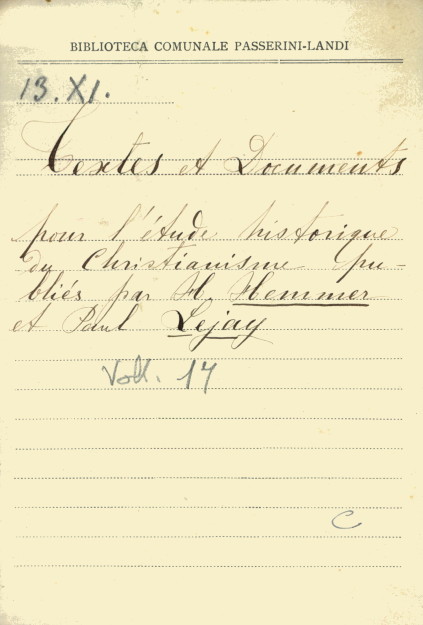 BIBLIOTECA COMUNALE PASSERINI-LANDI
13.XI.
Textes et Documents
pour l'étude historique
du Christianisme pu-
bliés par H. Hemmer
et Paul Lejay
Voll. 17
C